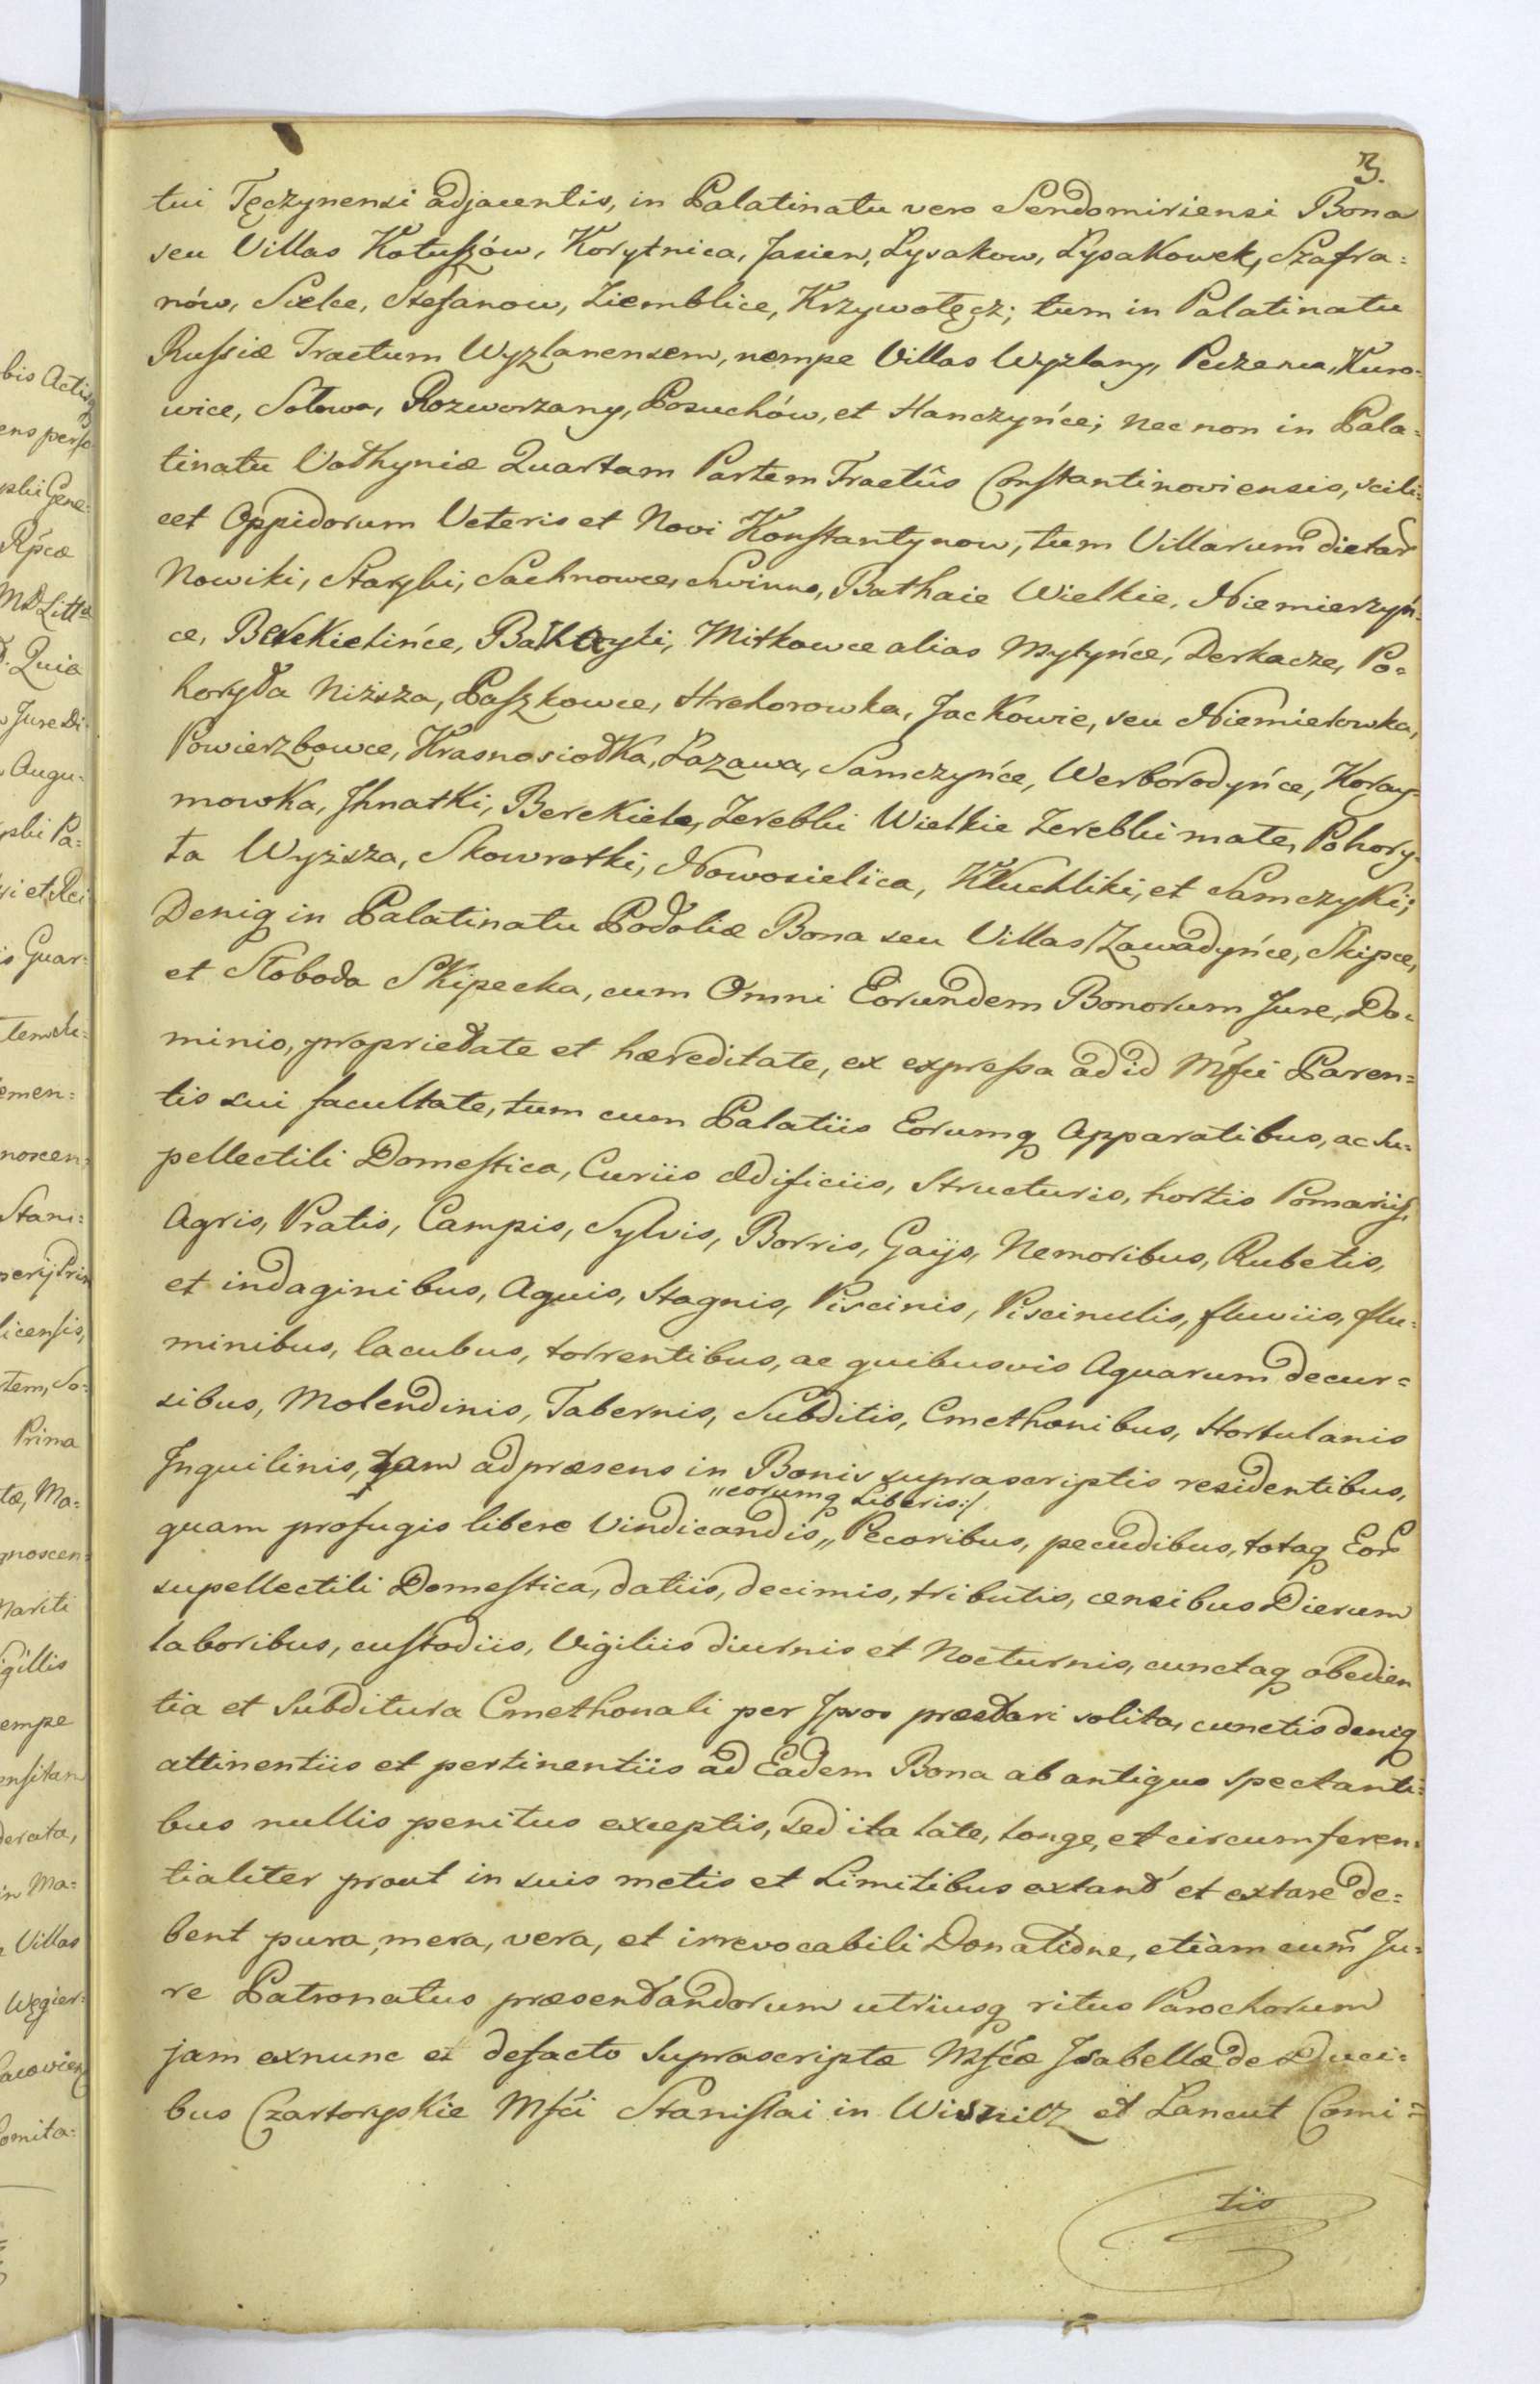 3.
tui Tęczynensi adjacentis, in Palatinatu vero Sendomiriensi Bona
seu Villas Kotuszów, Korytnica, Jasien, Lysakow, Lysakowek, Szafra=
nów, Sielce, Stefanow, Ziemblice, Krzywołęcz; tum in Palatinatu
Russiæ Tractum Wyzlanensem, nempe Villas Wyzlany, Peczenia, Kuro=
wice, Solowa, Rozworzany, Posuchów, et Hanczyńce; nec non in Pala=
tinatu Volhyniæ Quartam Partem Tractûs Constantinoviensis, scili=
cet Oppidorum Veteris et Novi Konstantynow, tum Villarum dictar
Nowiki, Staryki, Sachnowce, Swinna, Bathaie Wielkie, Niemierzyń=
ce, Berekielińce, Mitkowce alias Mytyńce, Derkacze, Po=
horyła Niższa, Paszkowce, Hrehorowka, Jackowie, seu Niemietowka,
Powierzbowce, Krasnosiołka, Łazawa, Samczyńce, Werborodyńce, Koray=
mowka, Jhnatki, Berekiele, Zereblii Wielkie Zereblii małe, Pohory=
ła Wyższa, Skowrotki, Nowosielica, Kluchliki, et Samczyki;
Deniq in Palatinatu Podoliæ Bona seu Villas Zawadyńce, Skipce,
et Słoboda Skipecka, cum Omni Eorundem Bonorum Jure, Do=
minio, proprietate et hæreditate, ex expressa ad id Mfci Paren=
tis sui facultate, tum cum Palatiis Eorumq Apparatibus, ac Su=
pellectili Domestica, Curiis Ædificiis, Structuris, hortis Pomariis,
Agris, Pratis, Campis, Sylvis, Borris, Gaijs, Nemoribus, Rubetis,
et indaginibus, Aquis, Stagnis, Piscinis, Piscinulis, fluviis, flu=
minibus, lacubus, torrentibus, ac quibusvis Aquarum decur=
sibus, Molendinis, Tabernis, Subditis, Cmethonibus, Hortulanis
Inquilinis, tam ad præsens in Bonis suprascriptis residentibus,
"eorumq Liberis:/
quam profugis libere Vindicandis" Pecoribus, pecudibus, totaq Eor
supellectili Domestica, datiis, decimis, tributis, censibus Dierum
laboribus, custodiis, Vigiliis diurnis et Nocturnis, cunctaq obedien
tia et Subditura Cmethonali per Ipsos præstari solita, cunctis deniq
attinentiis et pertinentiis ad Eadem Bona ab antiquo spectanti=
bus nullis penitus exceptis, sed ita late, longe, et circumferen=
tialiter prout in suis metis et Limitibus extant et extare de=
bent pura, mera, vera, et irrevocabili Donatione, etiam cum Ju=
re Patronatus præsentandorum utriusq ritus Parochorum
jam exnunc et defacto Suprascriptæ Mfcæ Isabellæ de Duci=
bus Czartoryskie Mfci Stanislai in Wisnicz et Lancut Comi=
tis